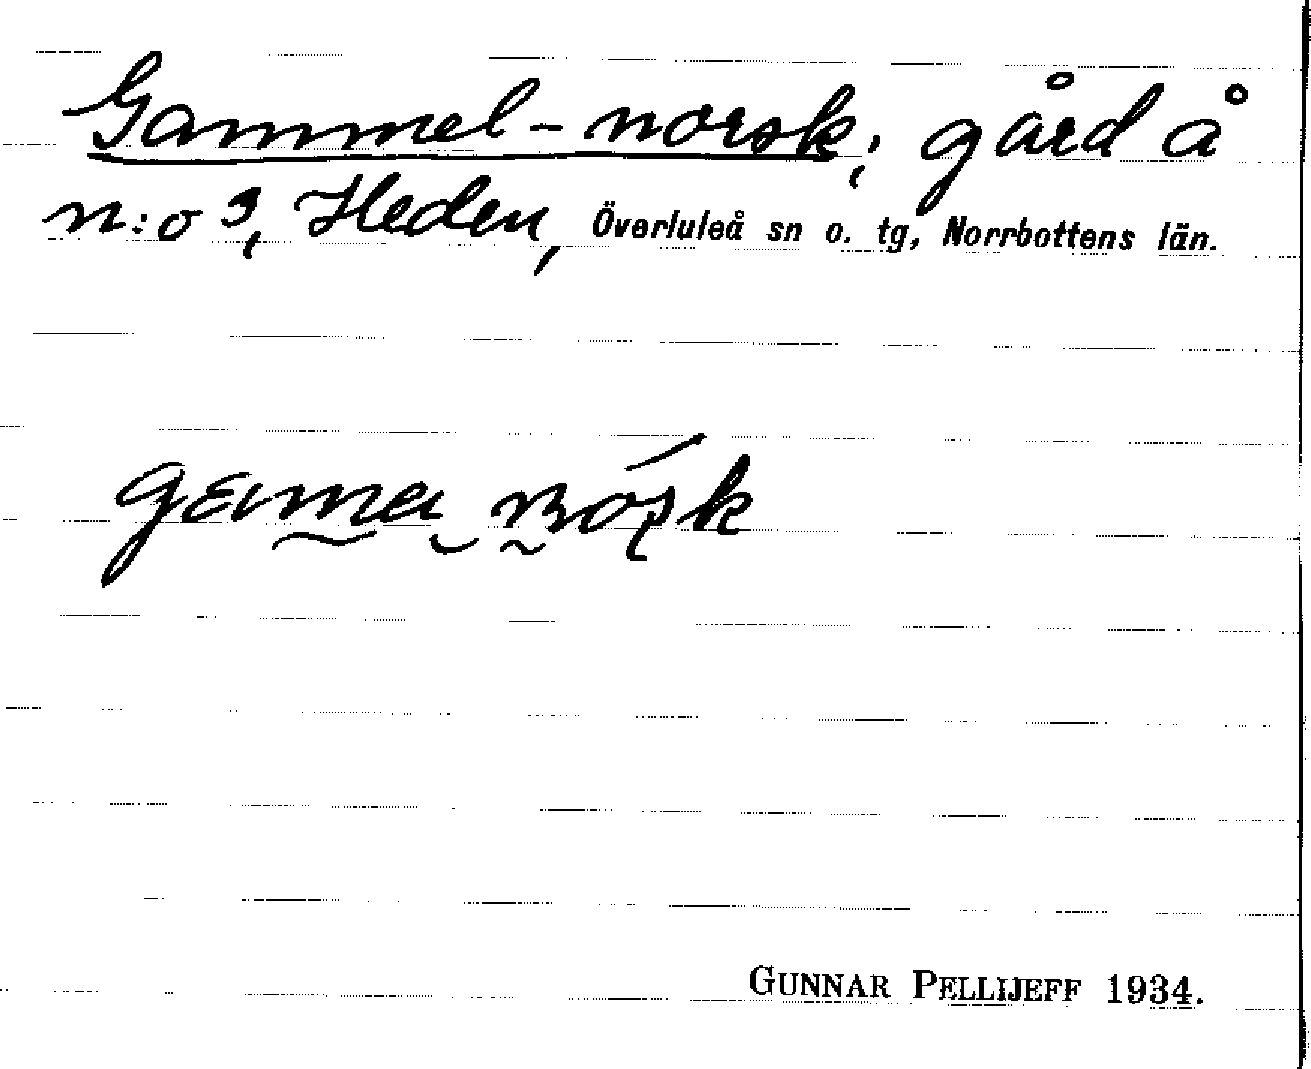 Gammel-norsk; gård å
n:o 3, Heden, Överluleå sn o. tg, Norrbottens län.
GUNNAR PELLIJEFF 1934.